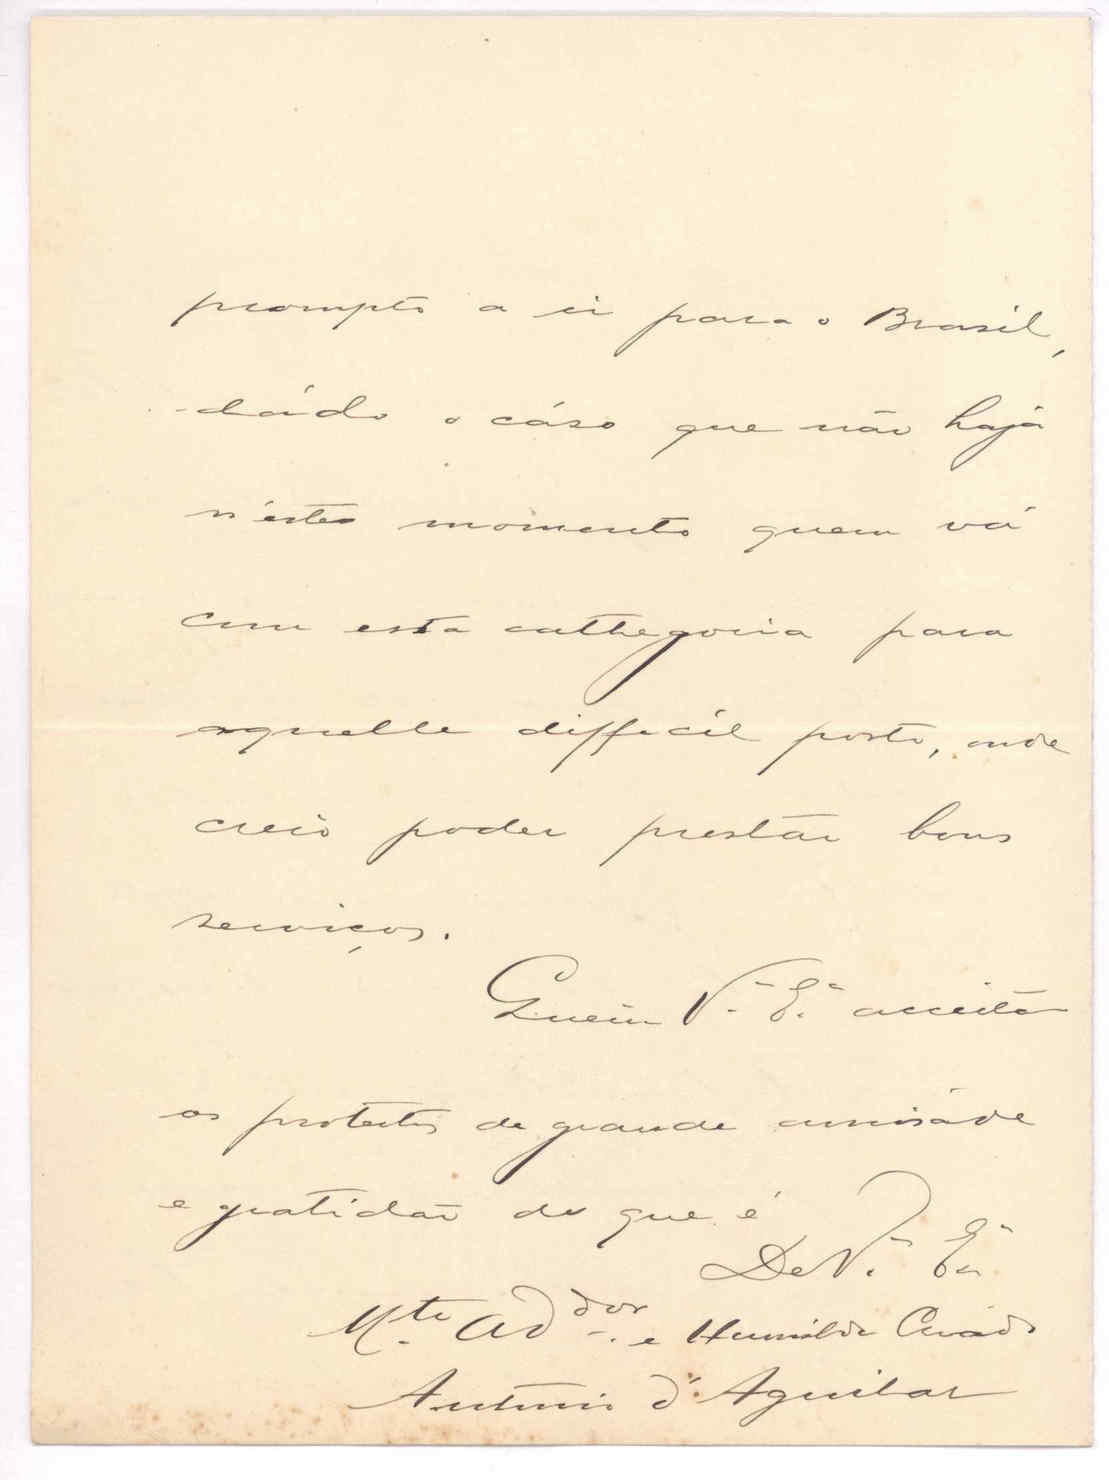 prompto a ir para o Brasil,
dádo o cáso que não hajá
n'éste momento quem vá
com esta cathegoria para
aquelle difficil posto, onde
creio poder prestár bons
serviços.
Queira V.ª E.ª acceitar
os protestos de grande amisáde
e gratidão do que é
De V.ª Ex.ª
M.te Ad.dor e Humilde Criádo
Antonio d'Aguilar